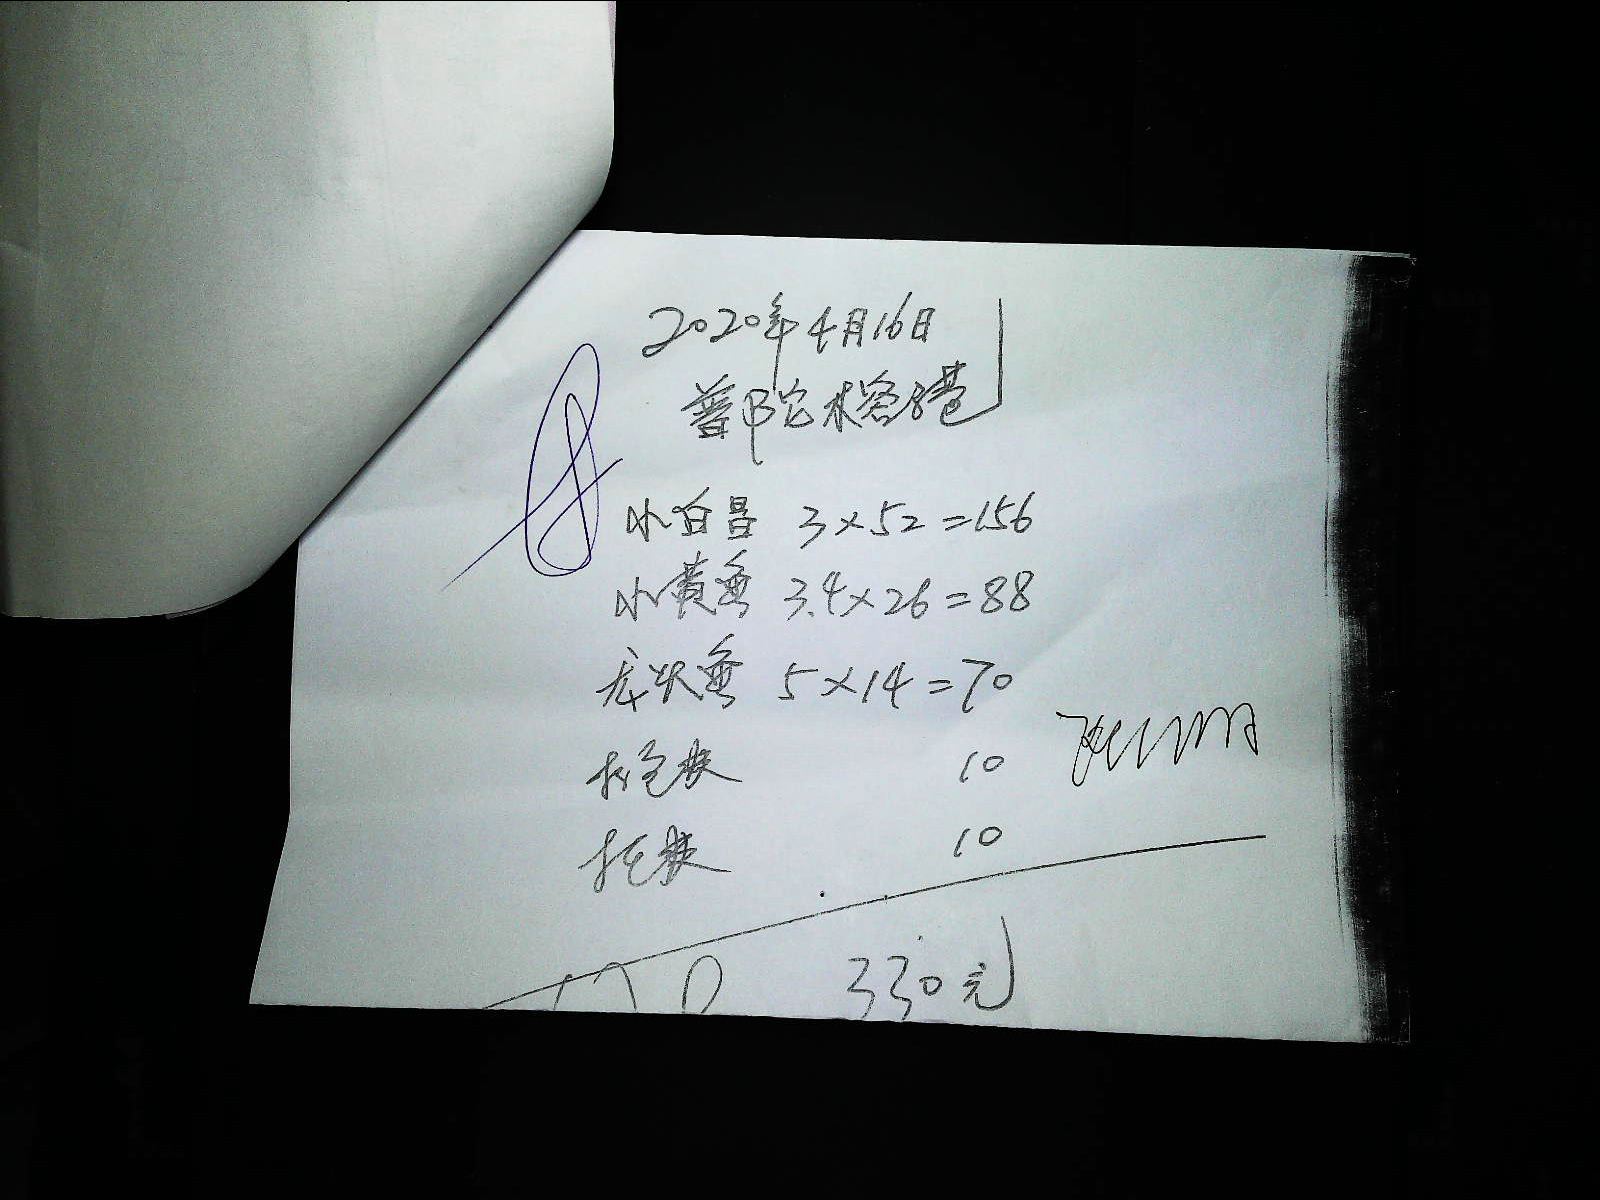 2020年4月16日
普陀
小白昌 3×52=156
小黄鱼 3.4×26=88
龙头鱼 5×14=70
打包袋 10
10
330元